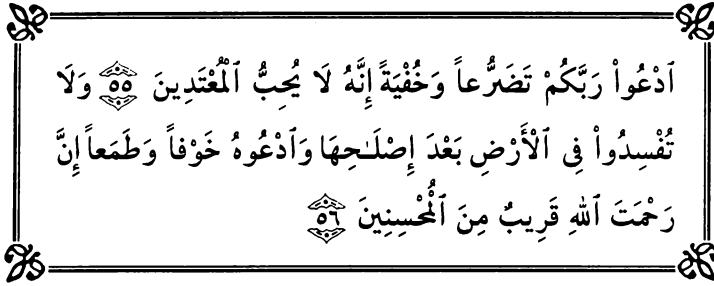 ٱدْعُوا۟ رَبَّكُمْ تَضَرُّعاً وَخُفْيَةً إِنَّهُ لَا يُحِبُّ ٱلْمُعْتَدِينَ ۝٥٥ وَلَا
تُفْسِدُوا۟ فِى ٱلْأَرْضِ بَعْدَ إِصْلَـٰحِهَا وَٱدْعُوهُ خَوْفاً وَطَمَعاً إِنَّ
رَحْمَتَ ٱللهِ قَرِيبٌ مِنَ ٱلْمُحْسِنِينَ ۝٥٦